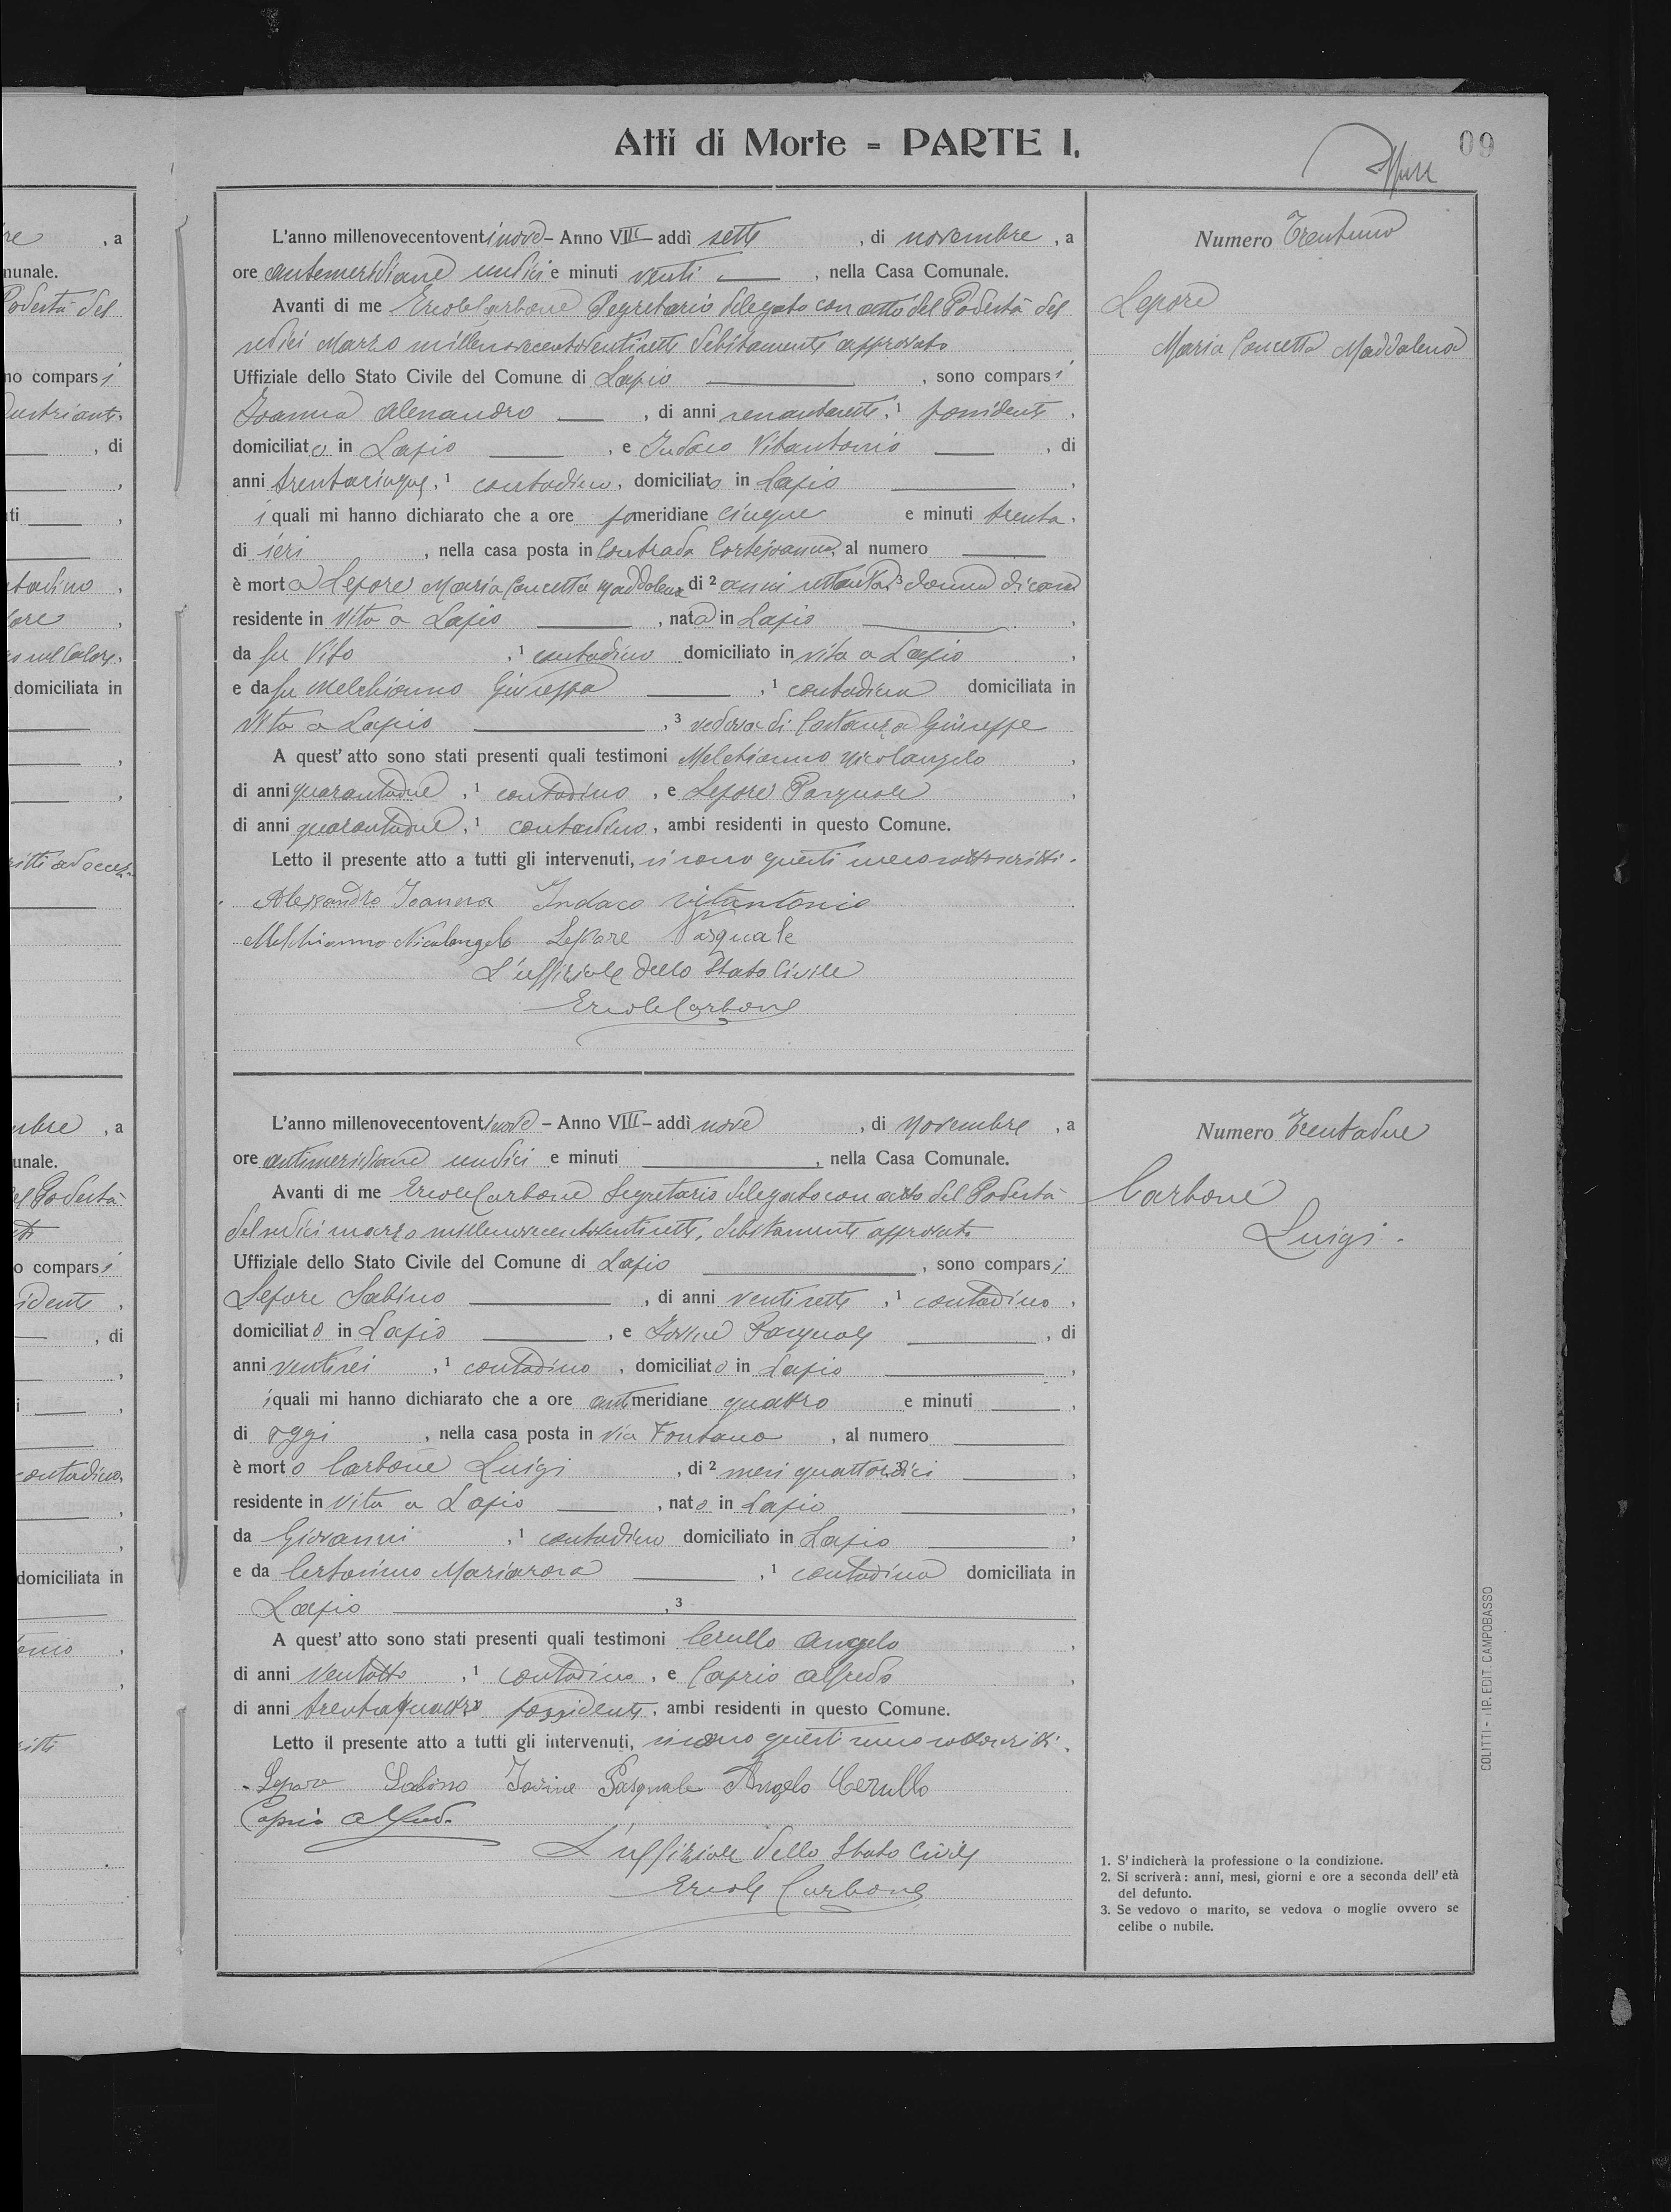 Atti di Morte = PARTE I.
09
L'anno millenovecentoventinove - Anno VIII - addì sette, di novembre, a
ore antemeridiane undici e minuti venti, nella Casa Comunale.
Avanti di me Ercole Carbone Segretario delegato con atto del Podestà del
sedici Marzo millenovecentoventisette debitamente approvato
Uffiziale dello Stato Civile del Comune di Lapio, sono comparsi
Ioanna Alessandro, di anni, ¹ possidente,
domiciliato in Lapio, e Indaco Vitantonio, di
anni trentacinque, ¹ contadino, domiciliato in Lapio,
i quali mi hanno dichiarato che a ore pomeridiane cinque e minuti trenta,
di ieri, nella casa posta in Contrada Cortejoanna, al numero
è morta Lepore Maria Concetta Maddalena di ² anni ³ donna di casa
residente in vita a Lapio, nata in Lapio,
da fu Vito, ¹ contadino domiciliato in vita a Lapio,
e da fu Melchionno Giuseppa, ¹ contadina domiciliata in
vita a Lapio, ³ vedova di Costanza Giuseppe
A quest' atto sono stati presenti quali testimoni Melchionno Nicolangelo,
di anni quarantadue, ¹ contadino, e Lepore Pasquale,
di anni quarantadue, ¹ contadino, ambi residenti in questo Comune.
Letto il presente atto a tutti gli intervenuti, si sono questi meco sottoscritti.
Alessandro Ioanna Indaco Vitantonio
Melchionno Nicolangelo Lepore Pasquale
L'uffiziale dello Stato Civile
Ercole Carbone
Numero Trentuno
Lepore
Maria Concetta Maddalena
L'anno millenovecentoventinove - Anno VIII - addì nove, di Novembre, a
ore antimeridiane undici e minuti, nella Casa Comunale.
Avanti di me Ercole Carbone Segretario delegato con atto del Podestà
del sedici marzo millenovecentoventisette, debitamente approvato
Uffiziale dello Stato Civile del Comune di Lapio, sono comparsi
Lepore Sabino, di anni ventisette, ¹ contadino,
domiciliato in Lapio, e Iovine Pasquale, di
anni ventisei, ¹ contadino, domiciliato in Lapio,
i quali mi hanno dichiarato che a ore antimeridiane quattro e minuti,
di oggi, nella casa posta in Via Fontana, al numero
è morto Carbone Luigi, di ² mesi quattordici,
residente in vita a Lapio, nato in Lapio,
da Giovanni, ¹ contadino domiciliato in Lapio,
e da Certosimo Mariarosa, ¹ contadina domiciliata in
Lapio, ³
A quest' atto sono stati presenti quali testimoni Cerullo Angelo,
di anni Ventotto, ¹ contadino, e Caprio Alfredo,
di anni trentaquattro possidente, ambi residenti in questo Comune.
Letto il presente atto a tutti gli intervenuti, si sono questi meco sottoscritti.
Lepore Sabino Iovine Pasquale Angelo Cerullo
Caprio Alfredo
L'uffiziale dello Stato Civile
Ercole Carbone
Numero Trentadue
Carbone
Luigi.
1. S'indicherà la professione o la condizione.
2. Si scriverà: anni, mesi, giorni e ore a seconda dell'età
del defunto.
3. Se vedovo o marito, se vedova o moglie ovvero se
celibe o nubile.
COLITTI - IR. EDIT. CAMPOBASSO